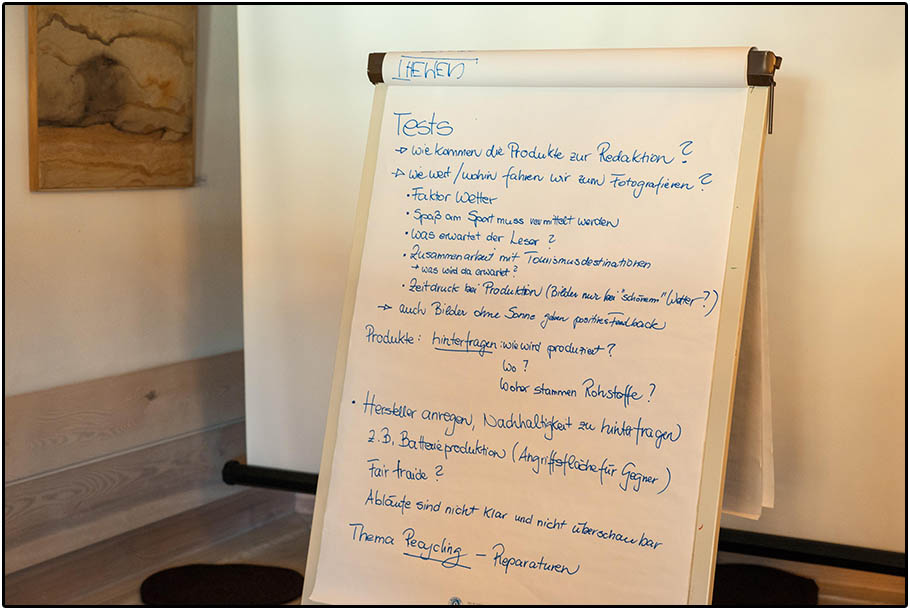 THEMEN
Tests
→ wie kommen die Produkte zur Redaktion?
→ wie weit / wohin fahren wir zum Fotografieren?
• Faktor Wetter
• Spaß am Sport muss vermittelt werden
• was erwartet der Leser?
• Zusammenarbeit mit Tourismusdestinationen
→ was wird da erwartet?
• Zeitdruck bei Produktion (Bilder nur bei "schönem" Wetter?)
→ auch Bilder ohne Sonne geben positives Feedback
Produkte: hinterfragen: wie wird produziert?
Wo?
Woher stammen Rohstoffe?
• Hersteller anregen, Nachhaltigkeit zu hinterfragen
z.B. Batterieproduktion (Angriffsfläche für Gegner)
Fair fraide?
Abläufe sind nicht klar und nicht überschaubar
Thema Recycling – Reparaturen